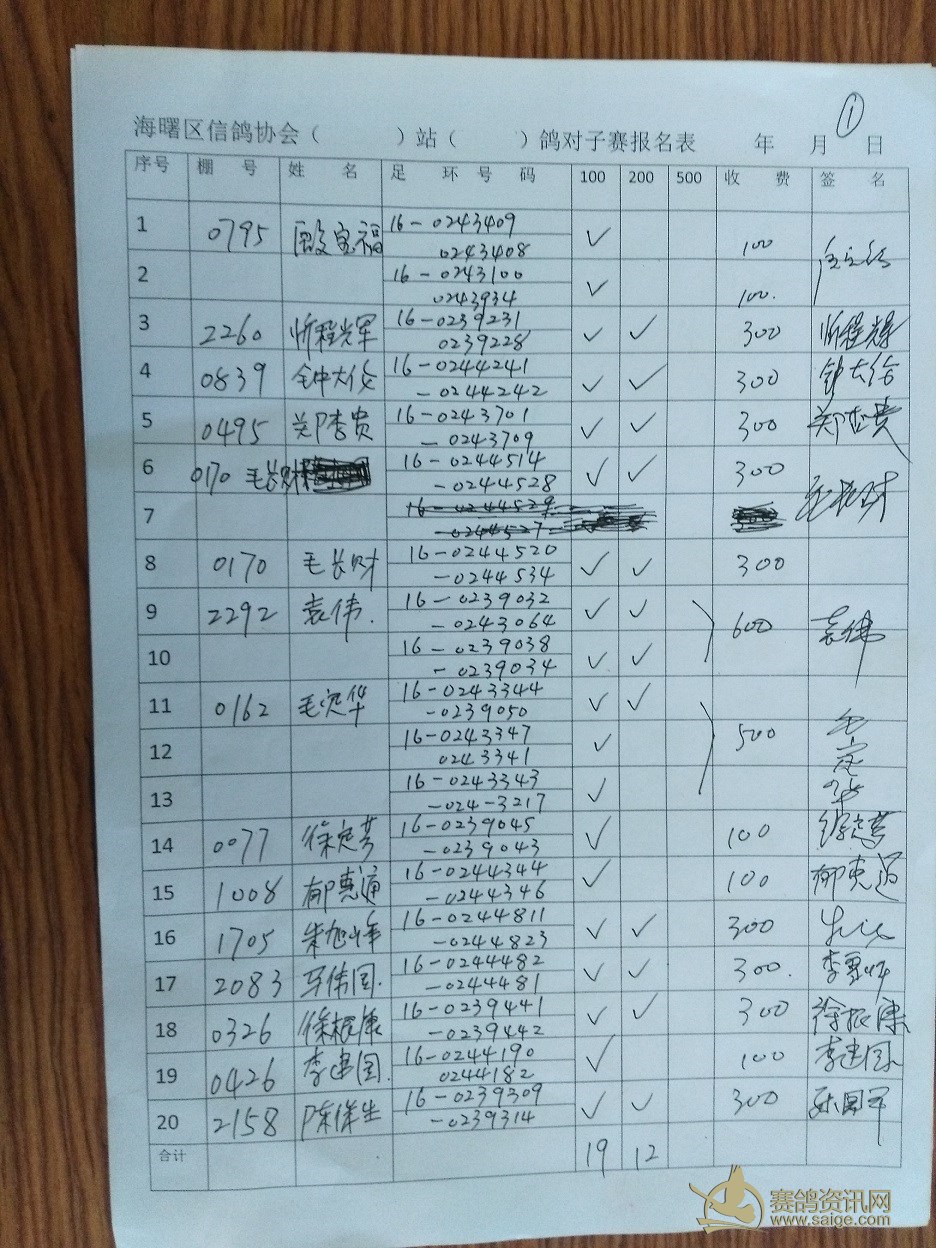 ①
海曙区信鸽协会（ ）站（ ）鸽对子赛报名表 年 月 日
序号 棚 号 姓 名 足 环 号 码 100 200 500 收 费 签 名
1 0795 殷宝福 16-0243409 ✓ 100
0243408
2 16-0243100 ✓ 100.
0243934
3 2260 忻程辉 16-0239231 ✓ ✓ 300 忻程辉
0239228
4 0839 钟大 16-0244241 ✓ ✓ 300 钟大
-0244242
5 0495 郑李贵 16-0243701 ✓ ✓ 300 郑李贵
-0243709
6 0170 毛长财 16-0244514 ✓ ✓ 300 毛长财
-0244528
7
8 0170 毛长财 16-0244520 ✓ ✓ 300
-0244534
9 2292 袁伟. 16-0239032 ✓ ✓ 600 袁伟
-0243064
10 16-0239038 ✓ ✓
-0239034
11 0162 毛定华 16-0243344 ✓ ✓ 500 毛定华
-0239050
12 16-0243347 ✓
0243341
13 16-0243343 ✓
-024-3217
14 0077 徐定芳 16-0239045 ✓ 100 徐定芳
-0239043
15 1008 郁惠通 16-0244344 ✓ 100 郁惠通
-0244346
16 1705 朱旭峰 16-0244811 ✓ ✓ 300
-0244823
17 2083 马伟国. 16-0244482 ✓ ✓ 300.
-0244481
18 0326 徐根康 16-0239441 ✓ ✓ 300 徐根康
-0239442
19 0426 李建国. 16-0244190 ✓ 100 李建国
0244182
20 2158 陈保生 16-0239309 ✓ ✓ 300
-0239314
合计 19 12
赛鸽资讯网
www.saige.com